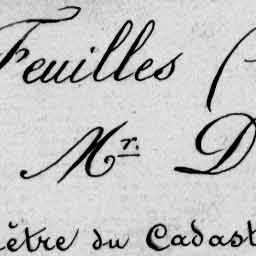 Feuilles (
Mr. D
ètre du Cadast